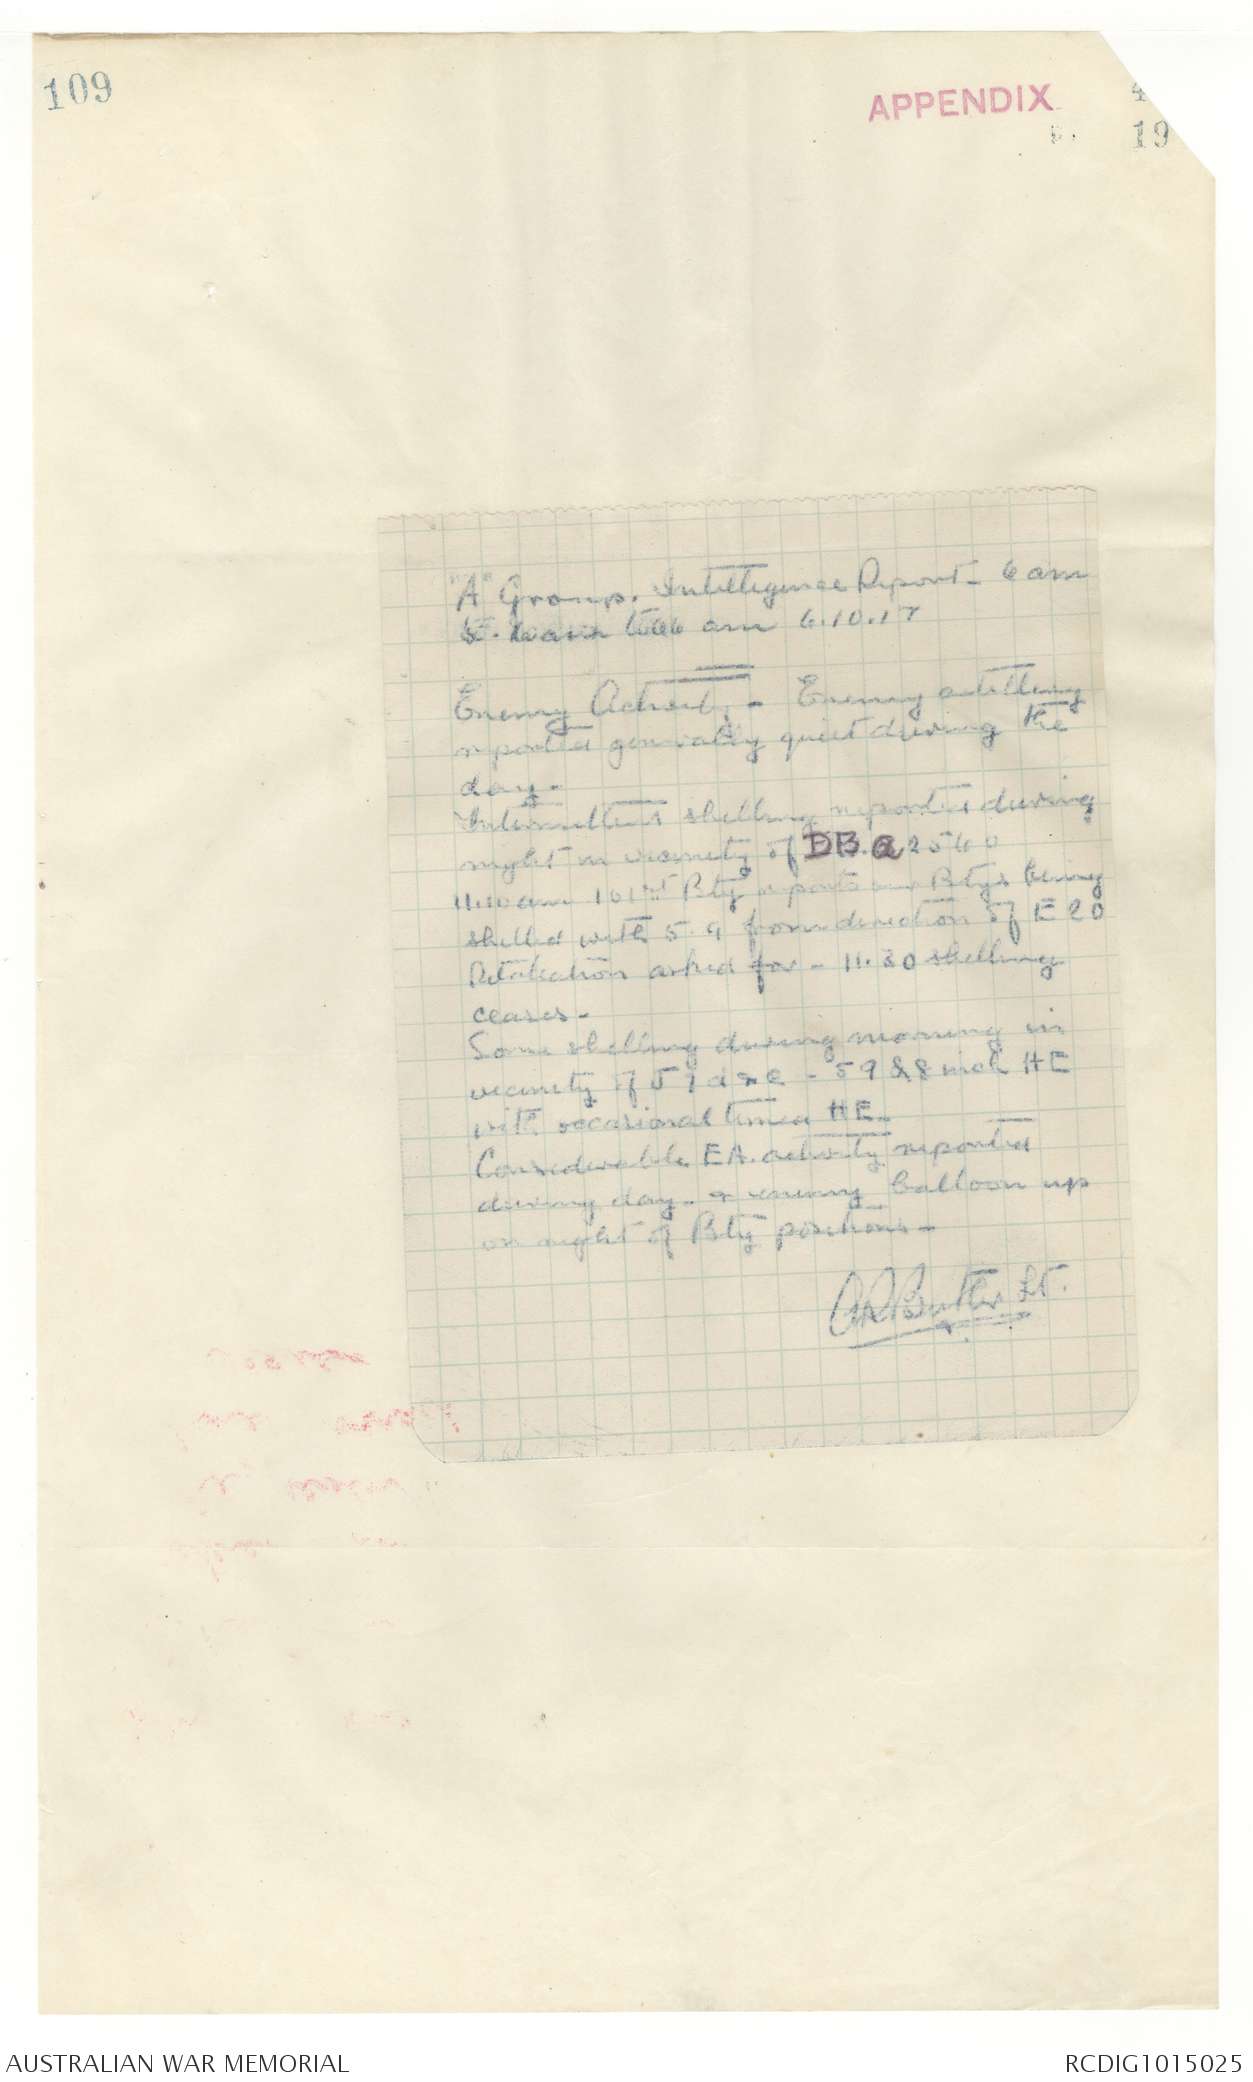 109
APPENDIX
19
"A" Group. Intelligence Report - 6 am
to 6 am 6.10.17
Enemy Activity - Enemy artillery
reported generally quiet during the
day -
Intermittent shelling reported during
night in vicinity of DB.a 2540
11.10 am 101st Bty reports Btys being
shelled with 5.9 from direction of E 20
Retaliation asked for - 11.30 shelling
ceases -
Some shelling during morning in
vicinity of J 7 d & c - 59 & 8 inch HE
with occasional timed HE -
Considerable EA. activity reported
during day - & enemy balloon up
on right of Bty positions -
Butler Lt.
AUSTRALIAN WAR MEMORIAL
RCDIG1015025